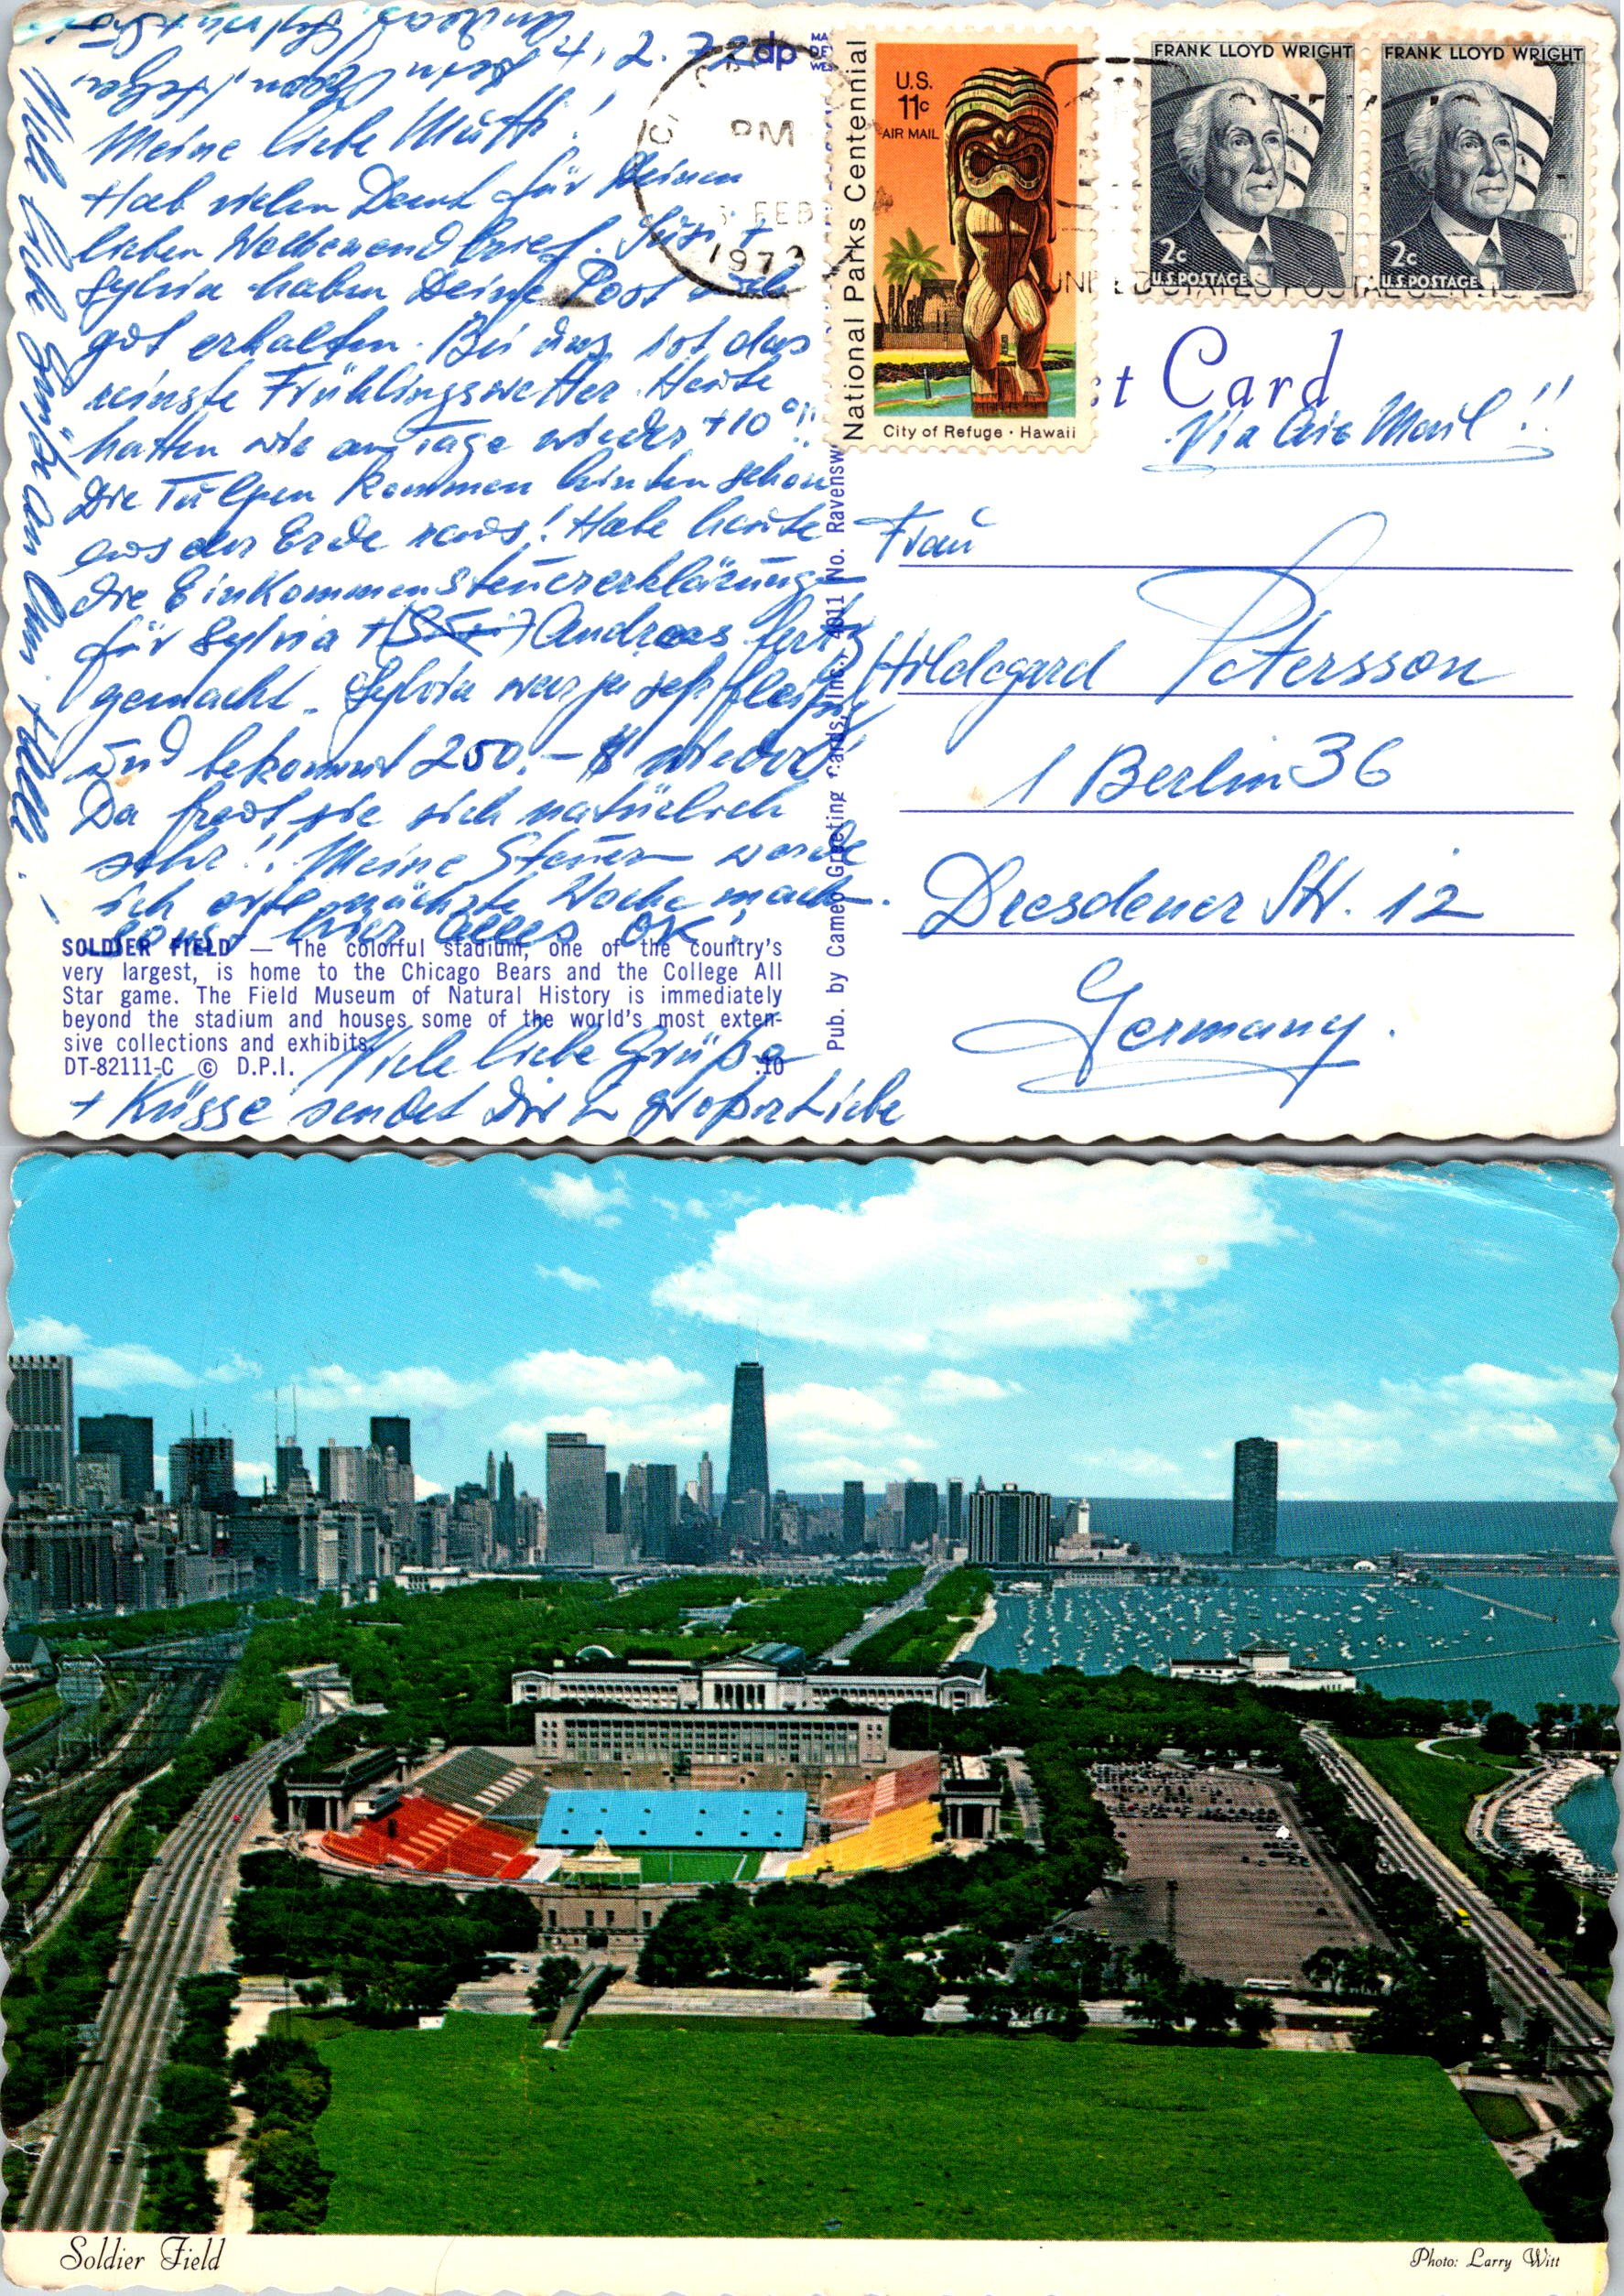 4. 2. 73
Meine liebe Mutti!
Hab vielen Dank für Deinen
lieben Wochenendbrief. Susi +
Sylvia haben Deine Post auch
gut erhalten. Bei uns ist das
reinste Frühlingswetter. Heute
hatten wir am Tage wieder +10°!!
Die Tulpen kommen hinten schon
aus der Erde raus! Habe heute
die Einkommensteuererklärung
für Sylvia + Andreas fertig
gemacht. Sylvia war ja sehr fleißig
und bekommt 250.- $ wieder!
Da freut sie sich natürlich
sehr!! Meine Steuer werde
ich erst nächste Woche machen.
Sonst hier alles OK!
Viele liebe Grüße
+ Küsse sendet Dir in großer Liebe
Dein Egon, Helga
Andreas, Sylvia + Susi
Viele liebe Grüße an
SOLDIER FIELD — The colorful stadium, one of the country's
very largest, is home to the Chicago Bears and the College All
Star game. The Field Museum of Natural History is immediately
beyond the stadium and houses some of the world's most exten-
sive collections and exhibits.
DT-82111-C © D.P.I. .10
dp
Pub. by Cameo Greeting Cards, Inc., 4011 No. Ravensw
PM
FEB
1973
UNITED STATES POSTAL SERVICE
National Parks Centennial
U.S.
11c
AIR MAIL
City of Refuge · Hawaii
FRANK LLOYD WRIGHT
2c
U.S. POSTAGE
FRANK LLOYD WRIGHT
2c
U.S. POSTAGE
st Card
Via Air Mail!!
Frau
Hildegard Petersson
1 Berlin 36
Dresdener Str. 12
Germany.
Soldier Field
Photo: Larry Witt